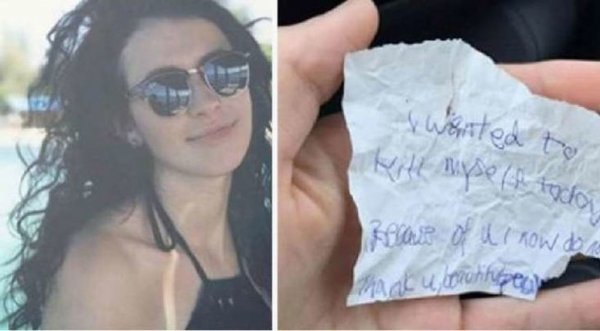 i wanted to
kill myself today
Because of u i now do no
thank u, beautiful